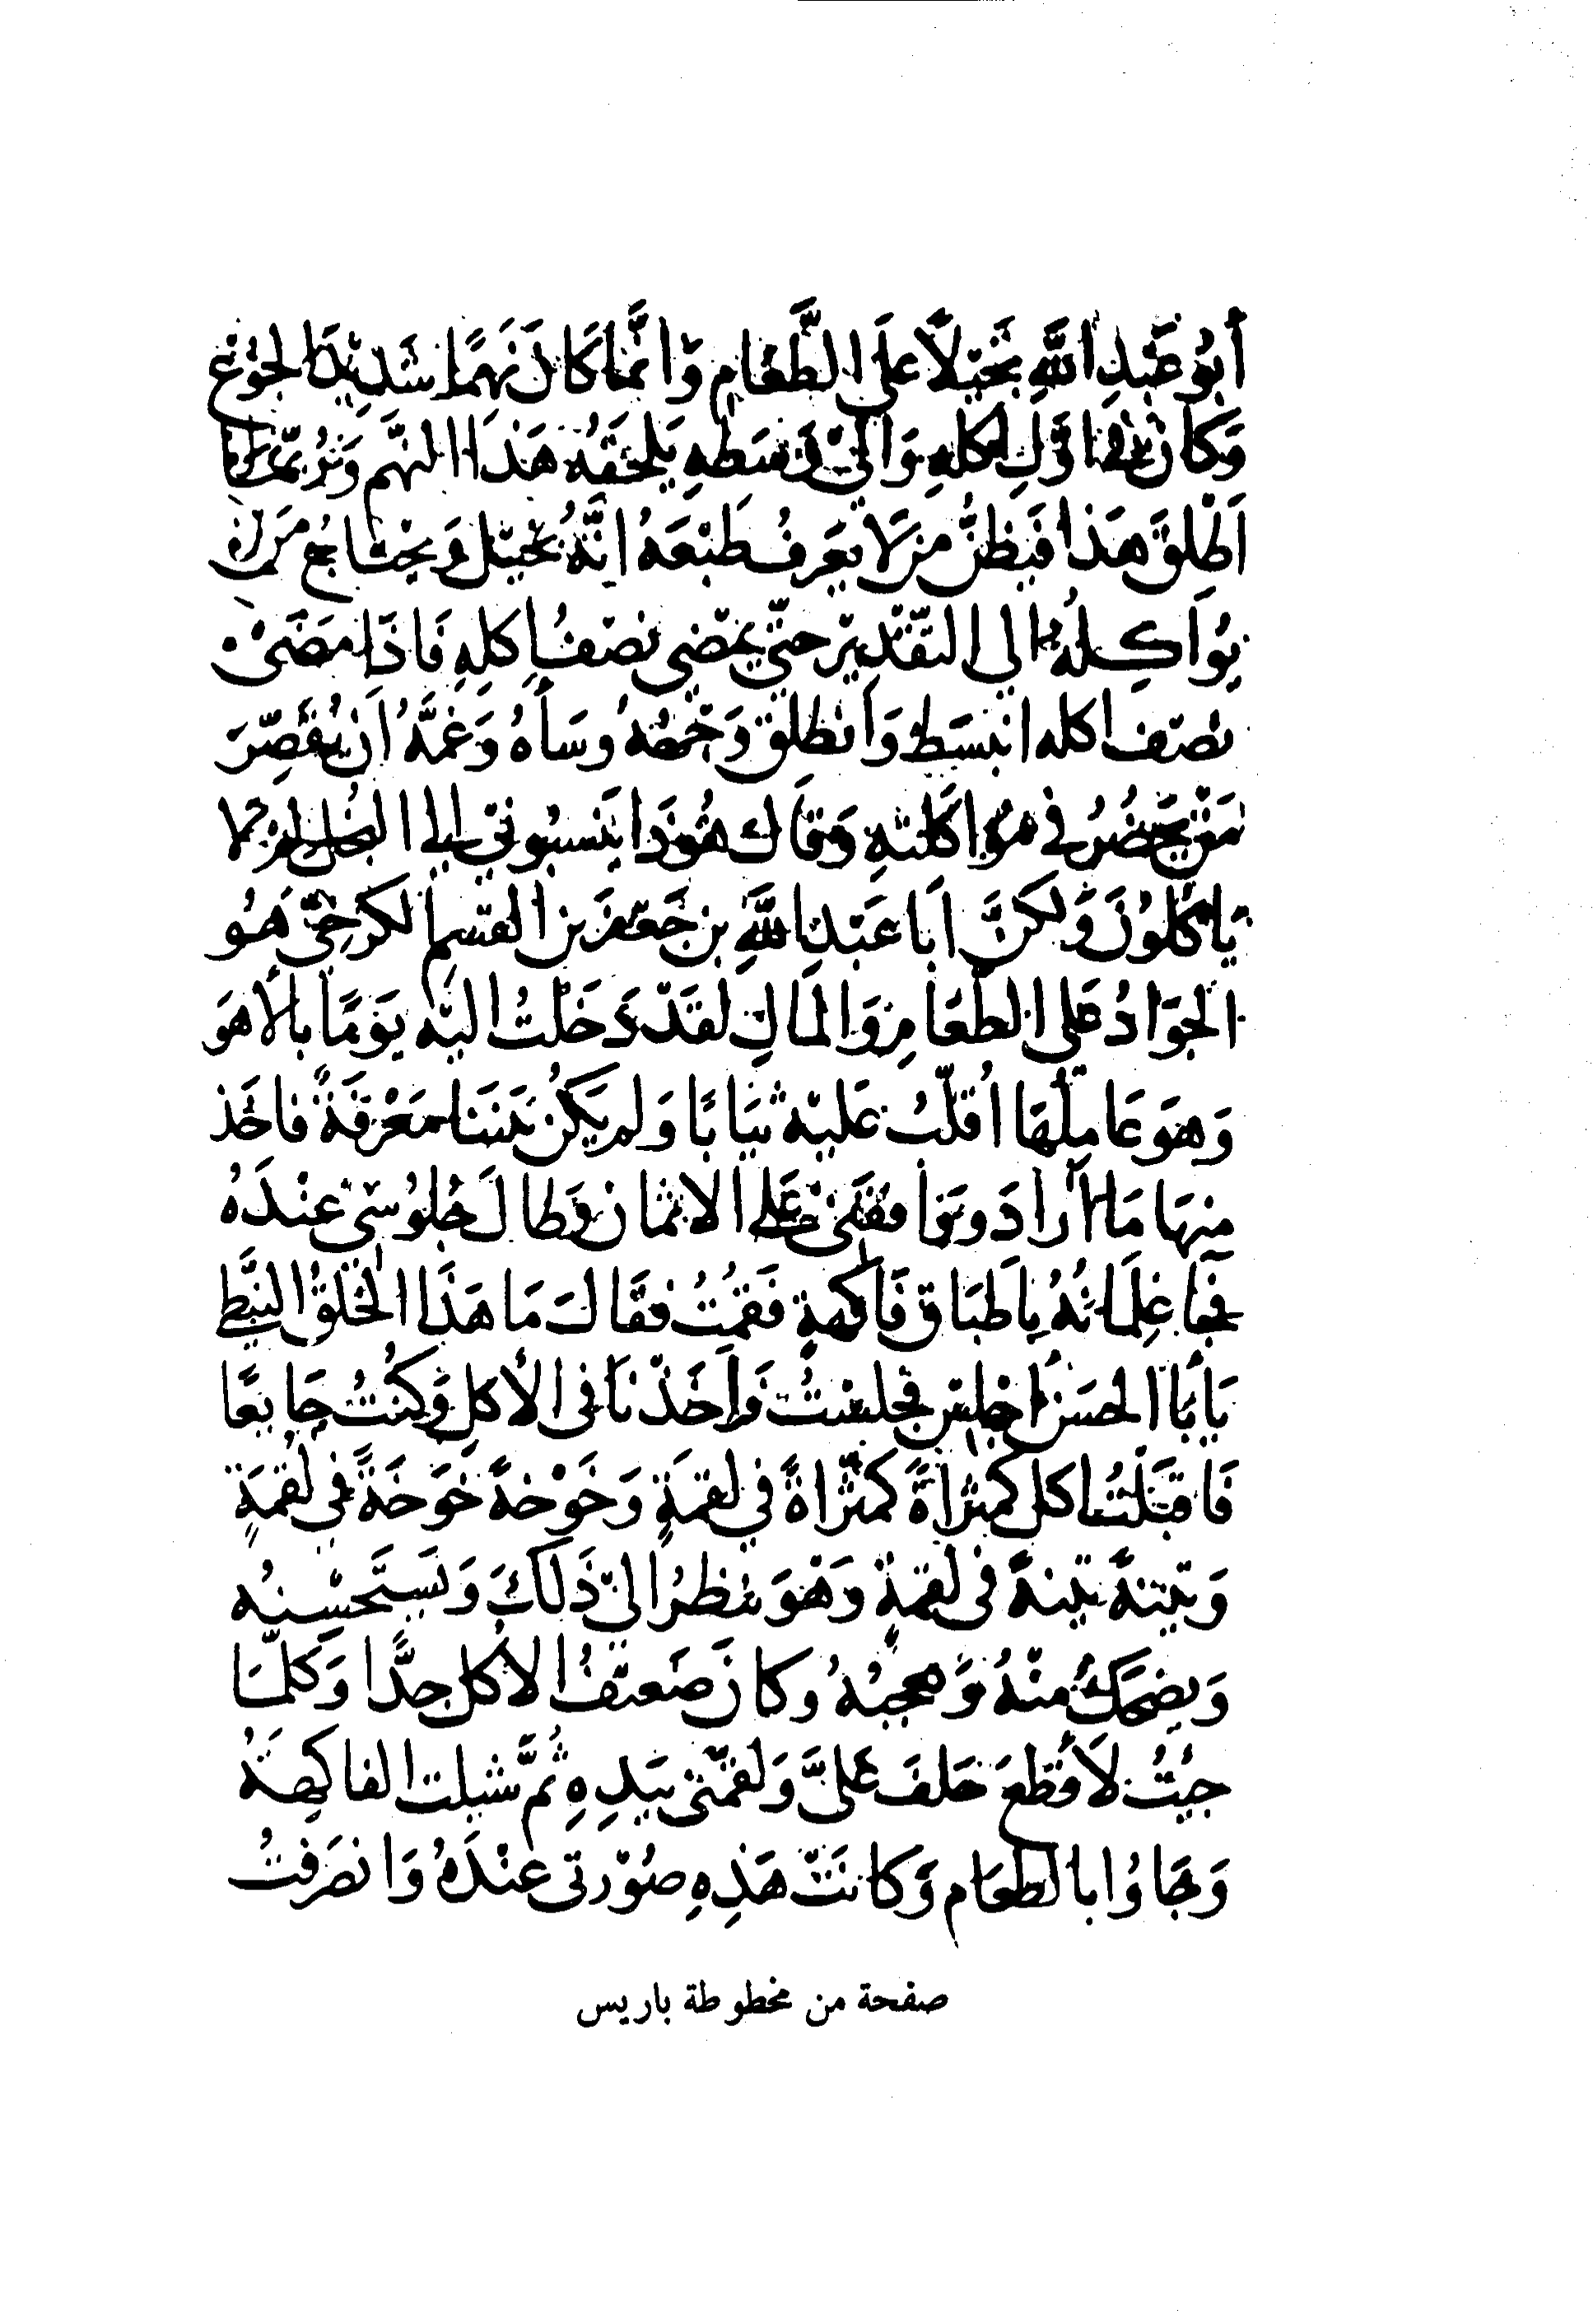 أَبُو عَبْدِ اللَّهِ بَخِيلًا عَلَى الطَّعَامِ وَإِنَّمَا كَانَ نَهِمًا شَدِيدَ الجُوعِ
وَكَانَ فِي أَوَّلِ أَكْلِهِ وَإِلَى وَسَطِهِ يَلْحَقُهُ هَذَا النَّهَم وَرُبَّمَا
اَطْلَقَ هَذَا فَيَظُنُّ مَنْ لَا يَعْرِفُ طَبْعَهُ اِنَّهُ بَخِيل وَيَحْتَاجُ مَنْ
يُوَاكِلُهُ الى التَّقْدِيرِ حَتَّى يَمْضِي نِصْفُ أَكلِهِ فَاذَا مَضَى
نصْف اكله انبَسَطَ وَانطَلقَ وَجْهُهُ وسَاهُ وَغَمَّهُ اَن يُقَصِّرَ
مَنْ يَحْضُرُ فِي مُوَاكَلَتِهِ وَقَالَ هُوَذَا يَنْسبُونِي الى البُخْل
يَاكُلُونَ وَلكنَّ اَبَا عَبْدِ اللَّهِ بن جَعْفَر بن القسم الكَرْخِيّ هُو
الجَوَادُ عَلى الطَّعَامِ وَالمَالِ لَقَدْ دَخَلْتُ اليْه يَوْمًا بالأَهوَ
وَهوَ عَامِلُهَا اُقَلّبُ عَليْه ثِيَابًا وَلم يَكُنْ بَيْنَنَا مَعْرِفَةً فاخَذ
مِنهَا مَا اَرَادَ وتوَافَقَنى عَلى الاثمَان وَطَالَ جُلُوسِي عِنْدَهُ
فجَا غِلمَانُهُ بِاَطبَاقِ فَاكهةٍ فَقمْتُ فقَالَ مَا هَذَا الخلقُ النَّبَطِي
يَابَا الحسَن اجْلِس فجلسْتُ وَاَخَذْنَا فى الأَكلِ وَكُنْتُ جَايعًا
فَاقبَلْتُ اكل كُمّثرَاةً كمّثرَاةً في لُقمَةٍ وَخَوْخةً خَوَخَةً في لُقْمَةٍ
وَتينةً تينةً فى لُقمةٍ وَهْوَ ينظرُ الى ذَلكَ وَيَستَحْسِنُه
وَيضحَكُ مِنْهُ وَيعجبُهُ وكانَ ضَعيْفُ الاكل جدًّا وَكلّمَا
جيْتُ لأَقْطَعَ حَلفَ عَلىَّ وَلقمَّنى بيَدِهِ ثُمَّ شيلت الفاكِهَةُ
وَجَاوُا بالطعَام وَكانَتْ هَذِهِ صُوْرَتى عنْدَهُ وَانصَرَفتُ
صفحة من مخطوطة باريس